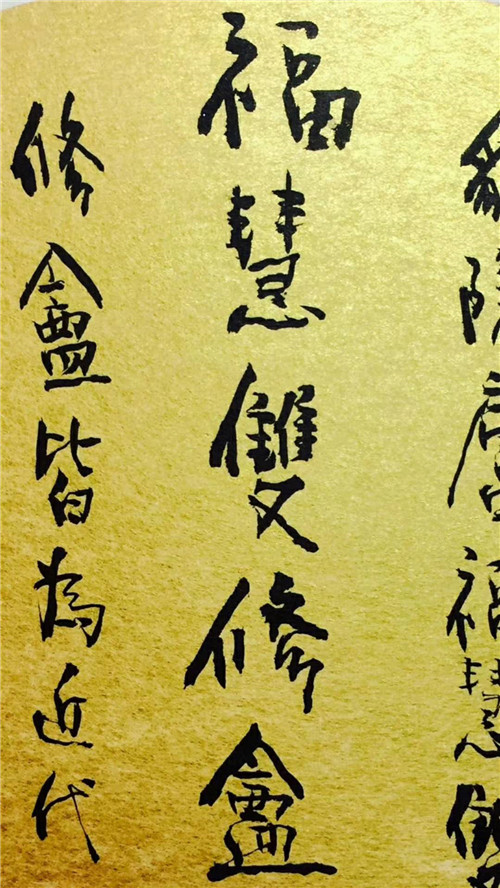 福慧雙
福慧雙修盦
修盦皆為近代